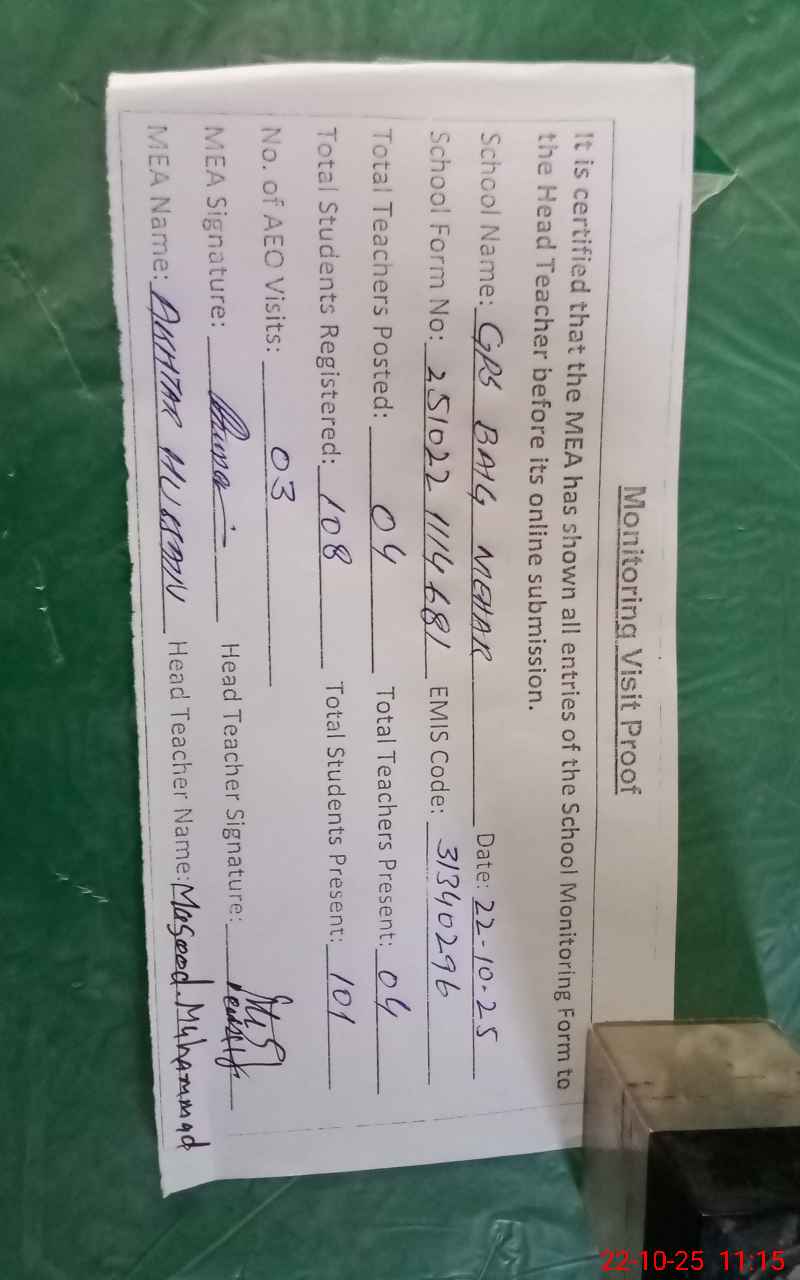 Monitoring Visit Proof
It is certified that the MEA has shown all entries of the School Monitoring Form to
the Head Teacher before its online submission.
School Name: GPS BAIG MEHAR Date: 22-10-25
School Form No: 251022 1114681 EMIS Code: 31340296
Total Teachers Posted: 04 Total Teachers Present: 04
Total Students Registered: 108 Total Students Present: 101
No. of AEO Visits: 03
MEA Signature: Head Teacher Signature:
MEA Name: AKHTAR HUSSAIN Head Teacher Name: Masood Muhammad
22-10-25 11:15